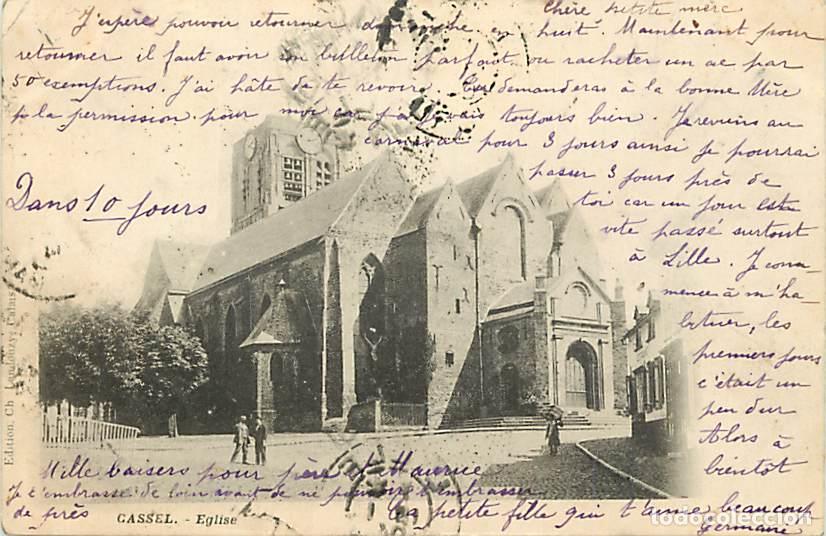 Chère petite mère
J'espère pouvoir retourner dimanche en huit. Maintenant pour
retourner il faut avoir son bulletin parfait ou racheter un ac par
50 exemptions. J'ai hâte de te revoir. Tu demanderas à la bonne Mère
la permission pour moi car j'a vais toujours bien. Je reviens au
carnaval pour 3 jours ainsi je pourrai
passer 3 jours près de
toi car un jour est
vite passé surtout
à Lille. Je com
mence à m'ha
bituer, les
premiers jours
c'était un
peu dur
Alors à
bientôt
Dans 10 jours
Mille baisers pour père et Maurice
Je t'embrasse de loin avant de ne pouvoir t'embrasser
de près
La petite fille qui t'aime beaucoup
Germaine
CASSEL. - Eglise
Edition, Ch. Calais
todocoleccion